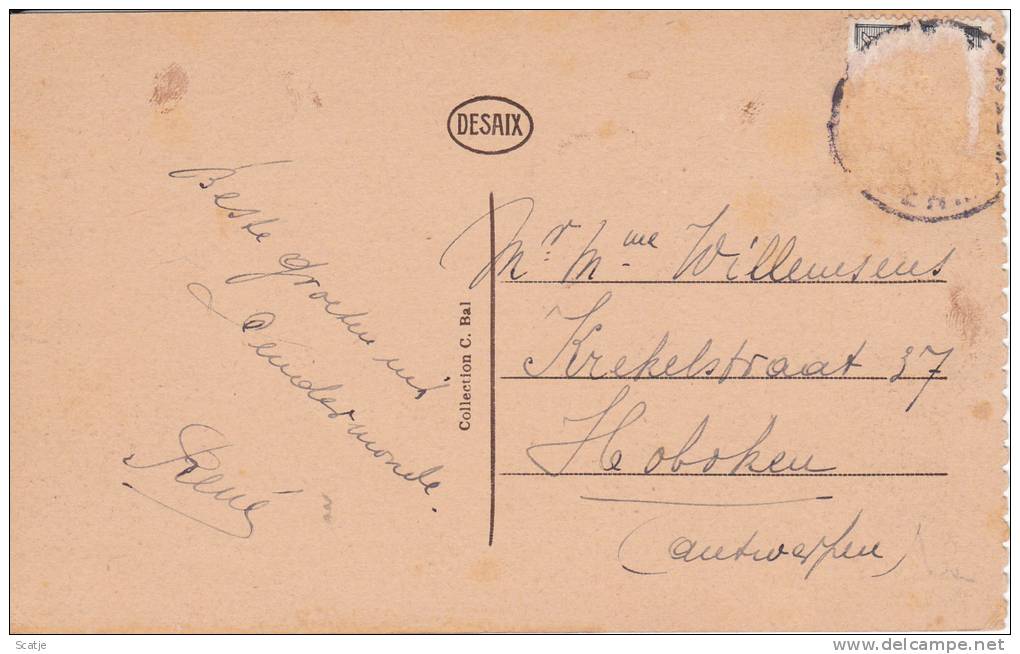 DESAIX
Beste groeten uit
Dendermonde.
René
Collection C. Bal
Mr. Mme Willemsens
Krekelstraat 37
Hoboken
(Antwerpen)
Scatje
www.delcampe.net